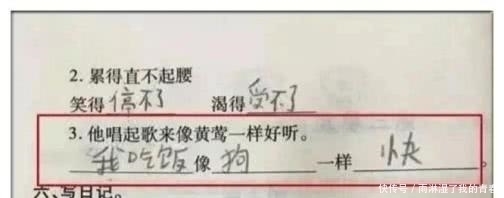 2. 累得直不起腰
笑得停不了 渴得受不了
3. 他唱起歌来像黄莺一样好听。
我吃饭像狗一样快。
六、写日记。
快传号/雨淋湿了我的青春